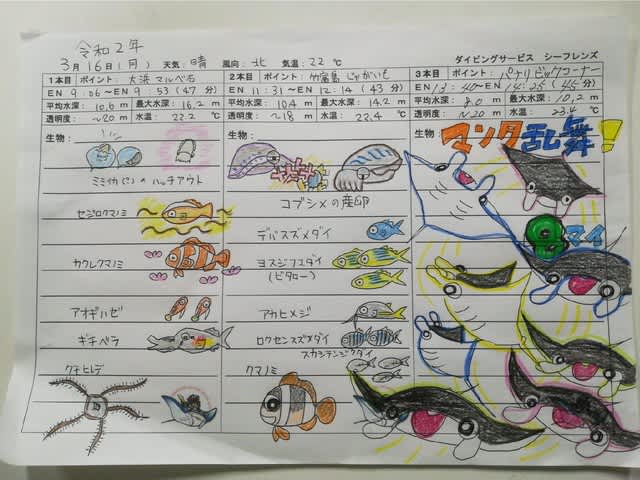 令和2年
3月16日(月) 天気：晴 風向：北 気温：22℃
ダイビングサービス シーフレンズ
1本目 ポイント：大浜マルベ石
EN 9：06～EN 9：53(47分)
平均水深：10.6m 最大水深：16.2m
透明度：～20m 水温：22.2℃
生物：
ミミイカ(?)のハッチアウト
セジロクマノミ
カクレクマノミ
アオギハゼ
ギチベラ
クモヒトデ
2本目 ポイント：竹富島 じゃがいも
EN 11：31～EN 12：14(43分)
平均水深：10.4m 最大水深：14.2m
透明度：～18m 水温：22.4℃
生物：
コブシメの産卵
デバスズメダイ
ヨスジフエダイ
(ビタロー)
アカヒメジ
ロクセンスズメダイ
スカシテンジクダイ
クマノミ
3本目 ポイント：パナリビッグコーナー
EN 13：40～EN 14：25(45分)
平均水深：8.0m 最大水深：10.2m
透明度：～20m 水温：23.4℃
生物
マンタ乱舞！
8マイ